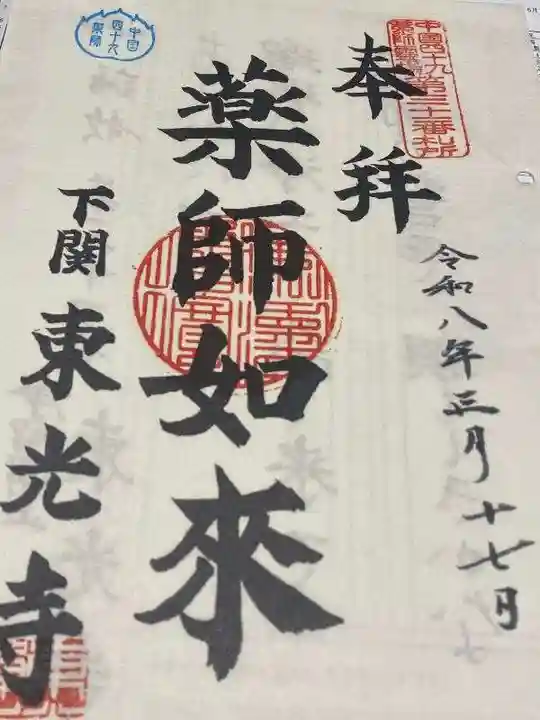 中国四十九薬師霊場第三十一番札所
奉拝
令和八年三月十七日
薬師如來
中国
四十九
薬師
下関
東光寺